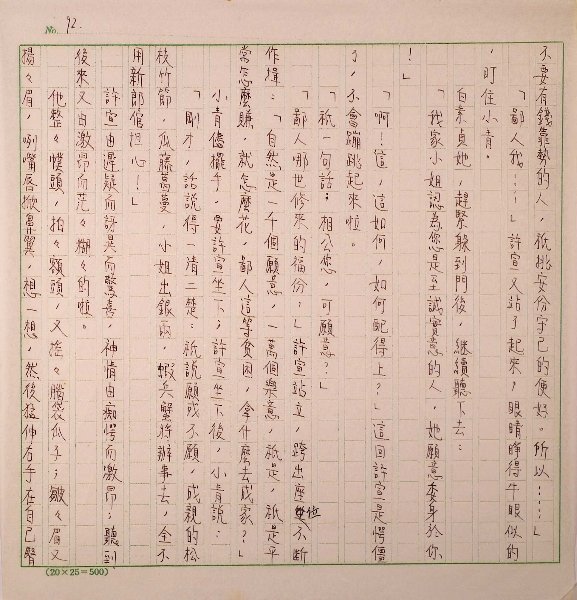 No. 92.
不要有錢靠勢的人，祇挑安份守己的便好。所以……」
「鄙人我…？」許宣又站了起來，眼睛睜得牛眼似的
，盯住小青。
白素貞她，趕緊躲到門後，繼續聽下去：
「我家小姐認為您是至誠實意的人，她願意委身於你
！」
「啊！這，這如何，如何配得上？」這回許宣是愕僵
了，不會蹦跳起來啦。
「祇一句話：相公您，可願意？」
「鄙人哪世修來的福份？」許宣站立，跨出座位不斷
作揖：「自然是一千個願意，一萬個樂意，祇是，祇是平
常怎麼賺，就怎麼花，鄙人這等貧困，拿什麼去成家？」
小青儘擺手，要許宣坐下；許宣坐下後，小青說：
「剛才，話說得一清二楚：祇說願或不願，成親的松
枝竹節，瓜藤葛蔓，小姐出銀兩，蝦兵蟹將辦事去，全不
用新郎倌担心！」
許宣由遲疑而訝異而驚喜，神情由痴愕而激昂；聽到
後來又由激昂而茫々糊々的啦。
他整々幞頭，拍々額頭，又搖々腦袋瓜子；皺々眉又
揚々眉，咧嘴唇掀鼻翼，想一想，然後猛伸右手在自己臂
(20×25=500)